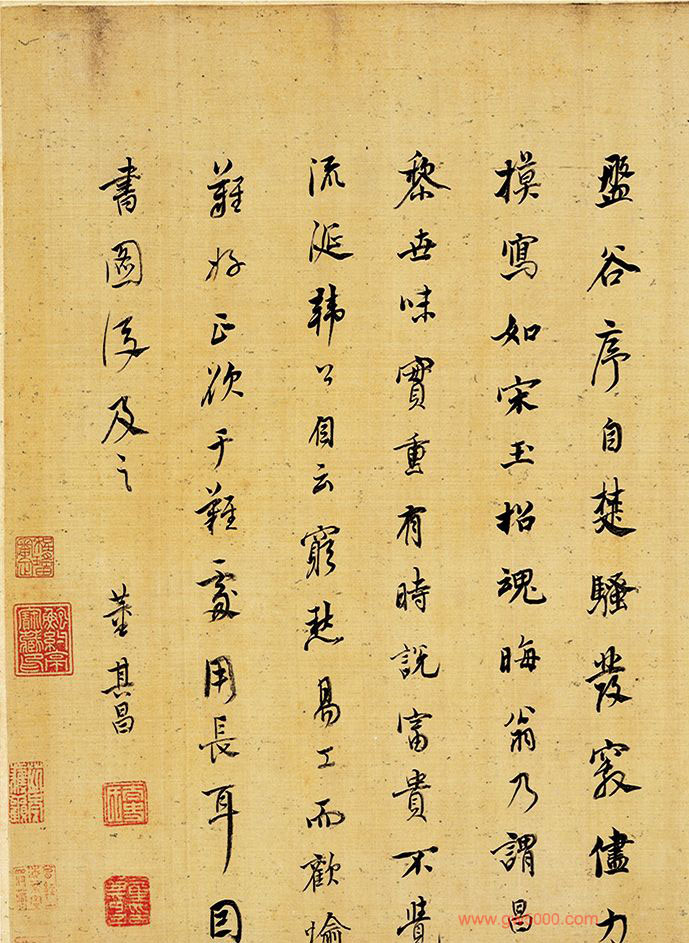 盤谷序自楚騷發竅儘力
摸寫如宋玉招魂晦翁乃謂昌
黎世味實重有時說富貴不覺
流涎韓公自云窮愁易工而歡愉
難好正欲于難處用長耳因
書圖後及之
董其昌
www.gtg000.com